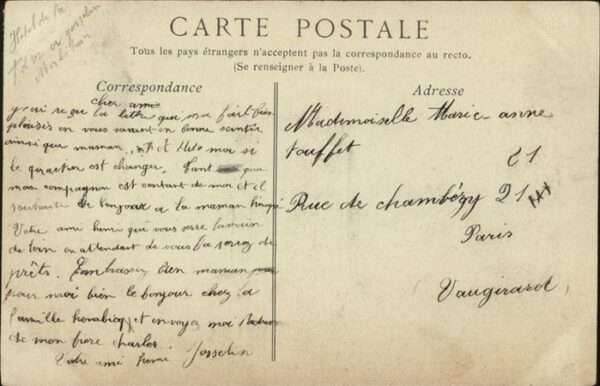 Hotel de la
CARTE POSTALE
Tous les pays étrangers n'acceptent pas la correspondance au recto.
(Se renseigner à la Poste).
Correspondance
Adresse
cher amie
j'ai reçu la lettre qui m'a fait bien
plaisir en vous savent en bonne santé
ainsi que maman, et dite moi si
le quartier est changer. Tant que
mon compagnon est contant de moi et il
souhaite le bonjour a la maman
Votre ami qui vous serre la main
de loin en attendant de vous la serrez de
prêts. Embrassez bien maman
pour moi bien le bonjour chez la
famille et envoyez moi
de mon frere charles.
Votre ami Josselin
Mademoiselle Marie-anne
touffet
21
Rue de chambéry 21
Paris
Vaugirard,